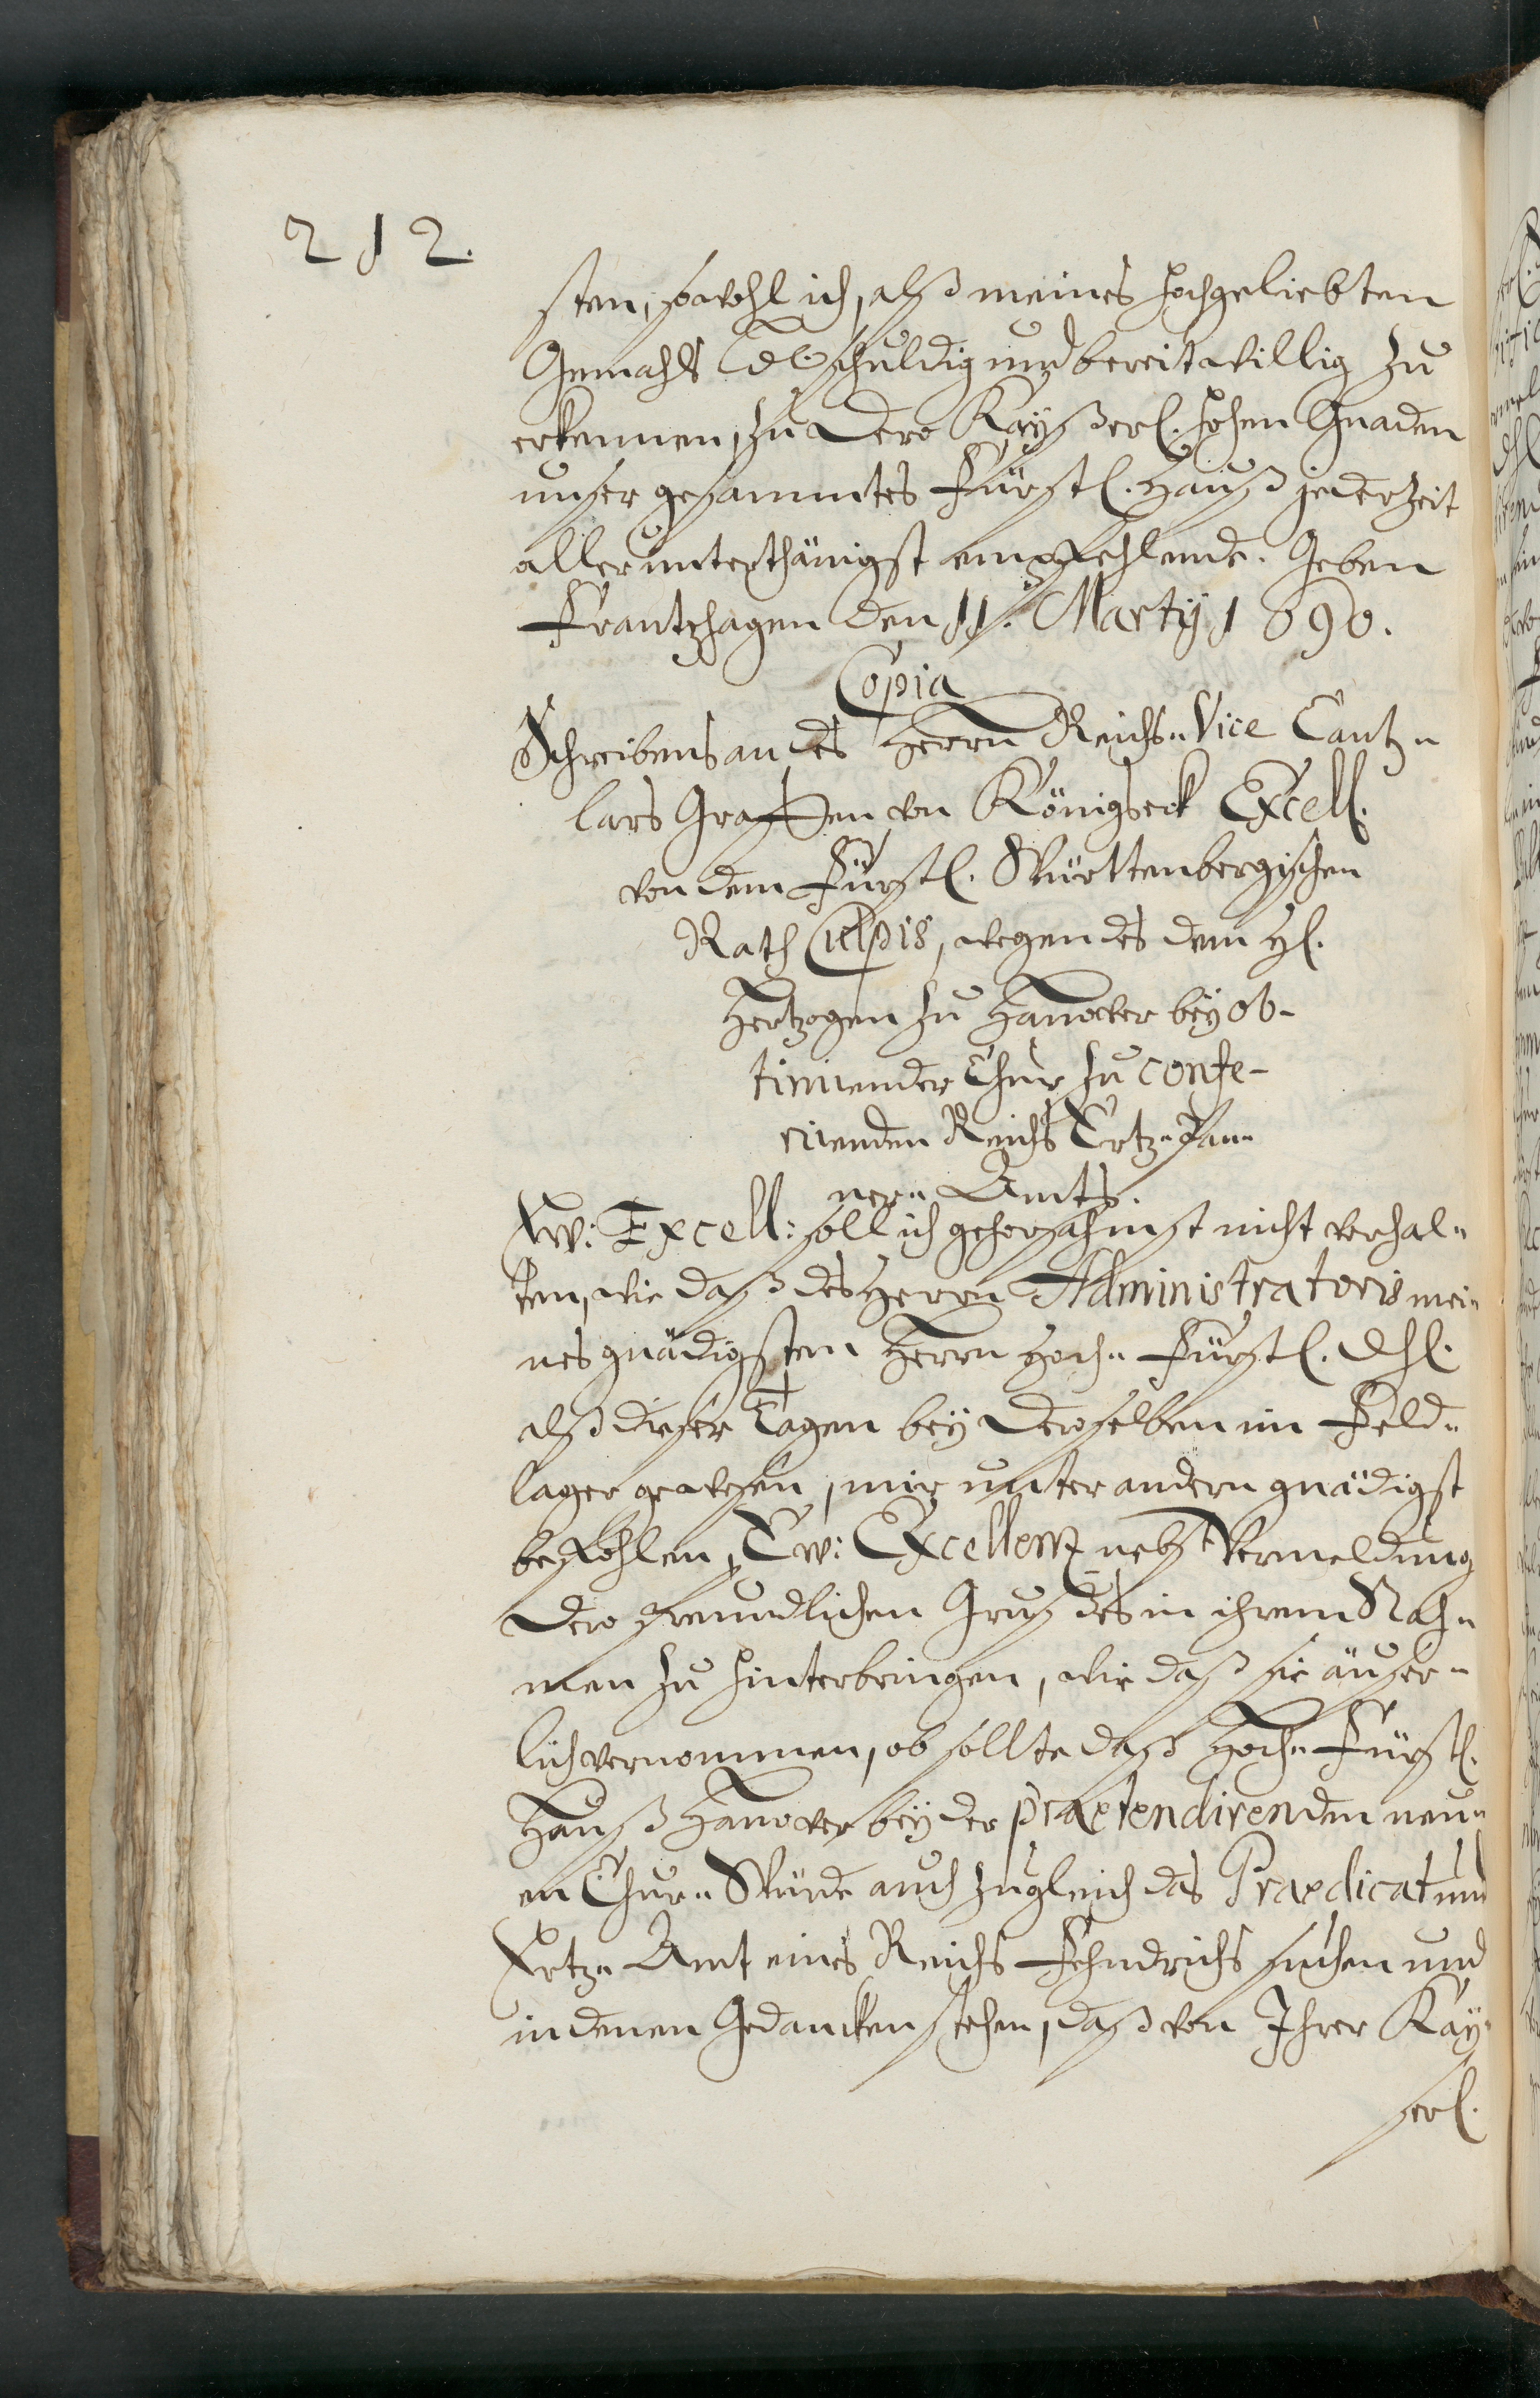 212.
sten, sowohl ich, alß meines hochgeliebten
Gemahls Ld. schuldig und bereitwillig zu
erkennen, zu Dero Kayßerl. hohen Gnaden
unser gesammtes Fürstl. Hauß jederzeit
allerunterthänigst empfehlende. Geben
Frantzhagen den 11. Martÿ 1690.
Copia
Schreibens an des Herrn Reichs-Vice Cantz-
lars Graffen von Königseck Excell.
von dem Fürstl. Württenbergischen
Rath Culpis, wegen des dem H.
Hertzogen zu Hanover beÿ ob-
tinirender Chur zu confe-
rirenden Reichs Ertz-Pan-
ner-Amts.
Ew: Excell: soll ich gehorsahmst nicht verhal-
ten, wie daß des Herrn Administratoris mei-
nes gnädigsten Herrn Hoch-Fürstl. Dhl.
alß dieser Tagen beÿ Deroselben im Feld-
lager gewesen, mir unter andern gnädigst
befohlen, Ew: Excellentz nebst Vermeldung
Dero freundlichen Gruses in ihrem Nah-
men zu hinterbringen, wie daß sie äuser-
lich vernommen, ob sollte daß Hoch-Fürstl.
Hauß Hanover beÿ der praetendirenden neu-
en Chur-Würde auch zugleich das Praedicat und
Ertz-Amt eines Reichs Fehndrichs suchen und
in denen Gedancken stehen, daß von Ihrer Kaÿ-
serl.